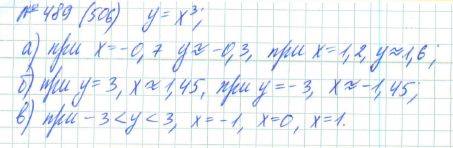 № 489 (506) y = x³;
а) при x = -0,7 y ≈ -0,3, при x = 1,2, y ≈ 1,6;
б) при y = 3, x ≈ 1,45, при y = -3, x ≈ -1,45;
в) при -3 < y < 3, x = -1, x = 0, x = 1.